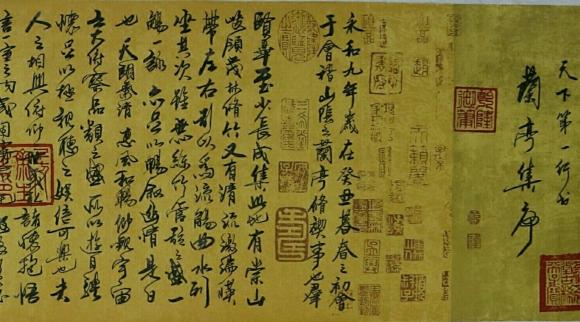 天下第一行书
蘭亭集序
永和九年歲在癸丑暮春之初會
于會稽山陰之蘭亭脩禊事也羣
賢畢至少長咸集此地有崇山
峻領茂林脩竹又有清流激湍暎
帶左右引以為流觴曲水列
坐其次雖無絲竹管弦之盛一
觴一詠亦足以暢叙幽情是日
也天朗氣清惠風和暢仰觀宇宙
之大俯察品類之盛所以遊目騁
懷足以極視聽之娛信可樂也夫
人之相與俯仰一世或取諸懷抱悟
言一室之內或因寄所